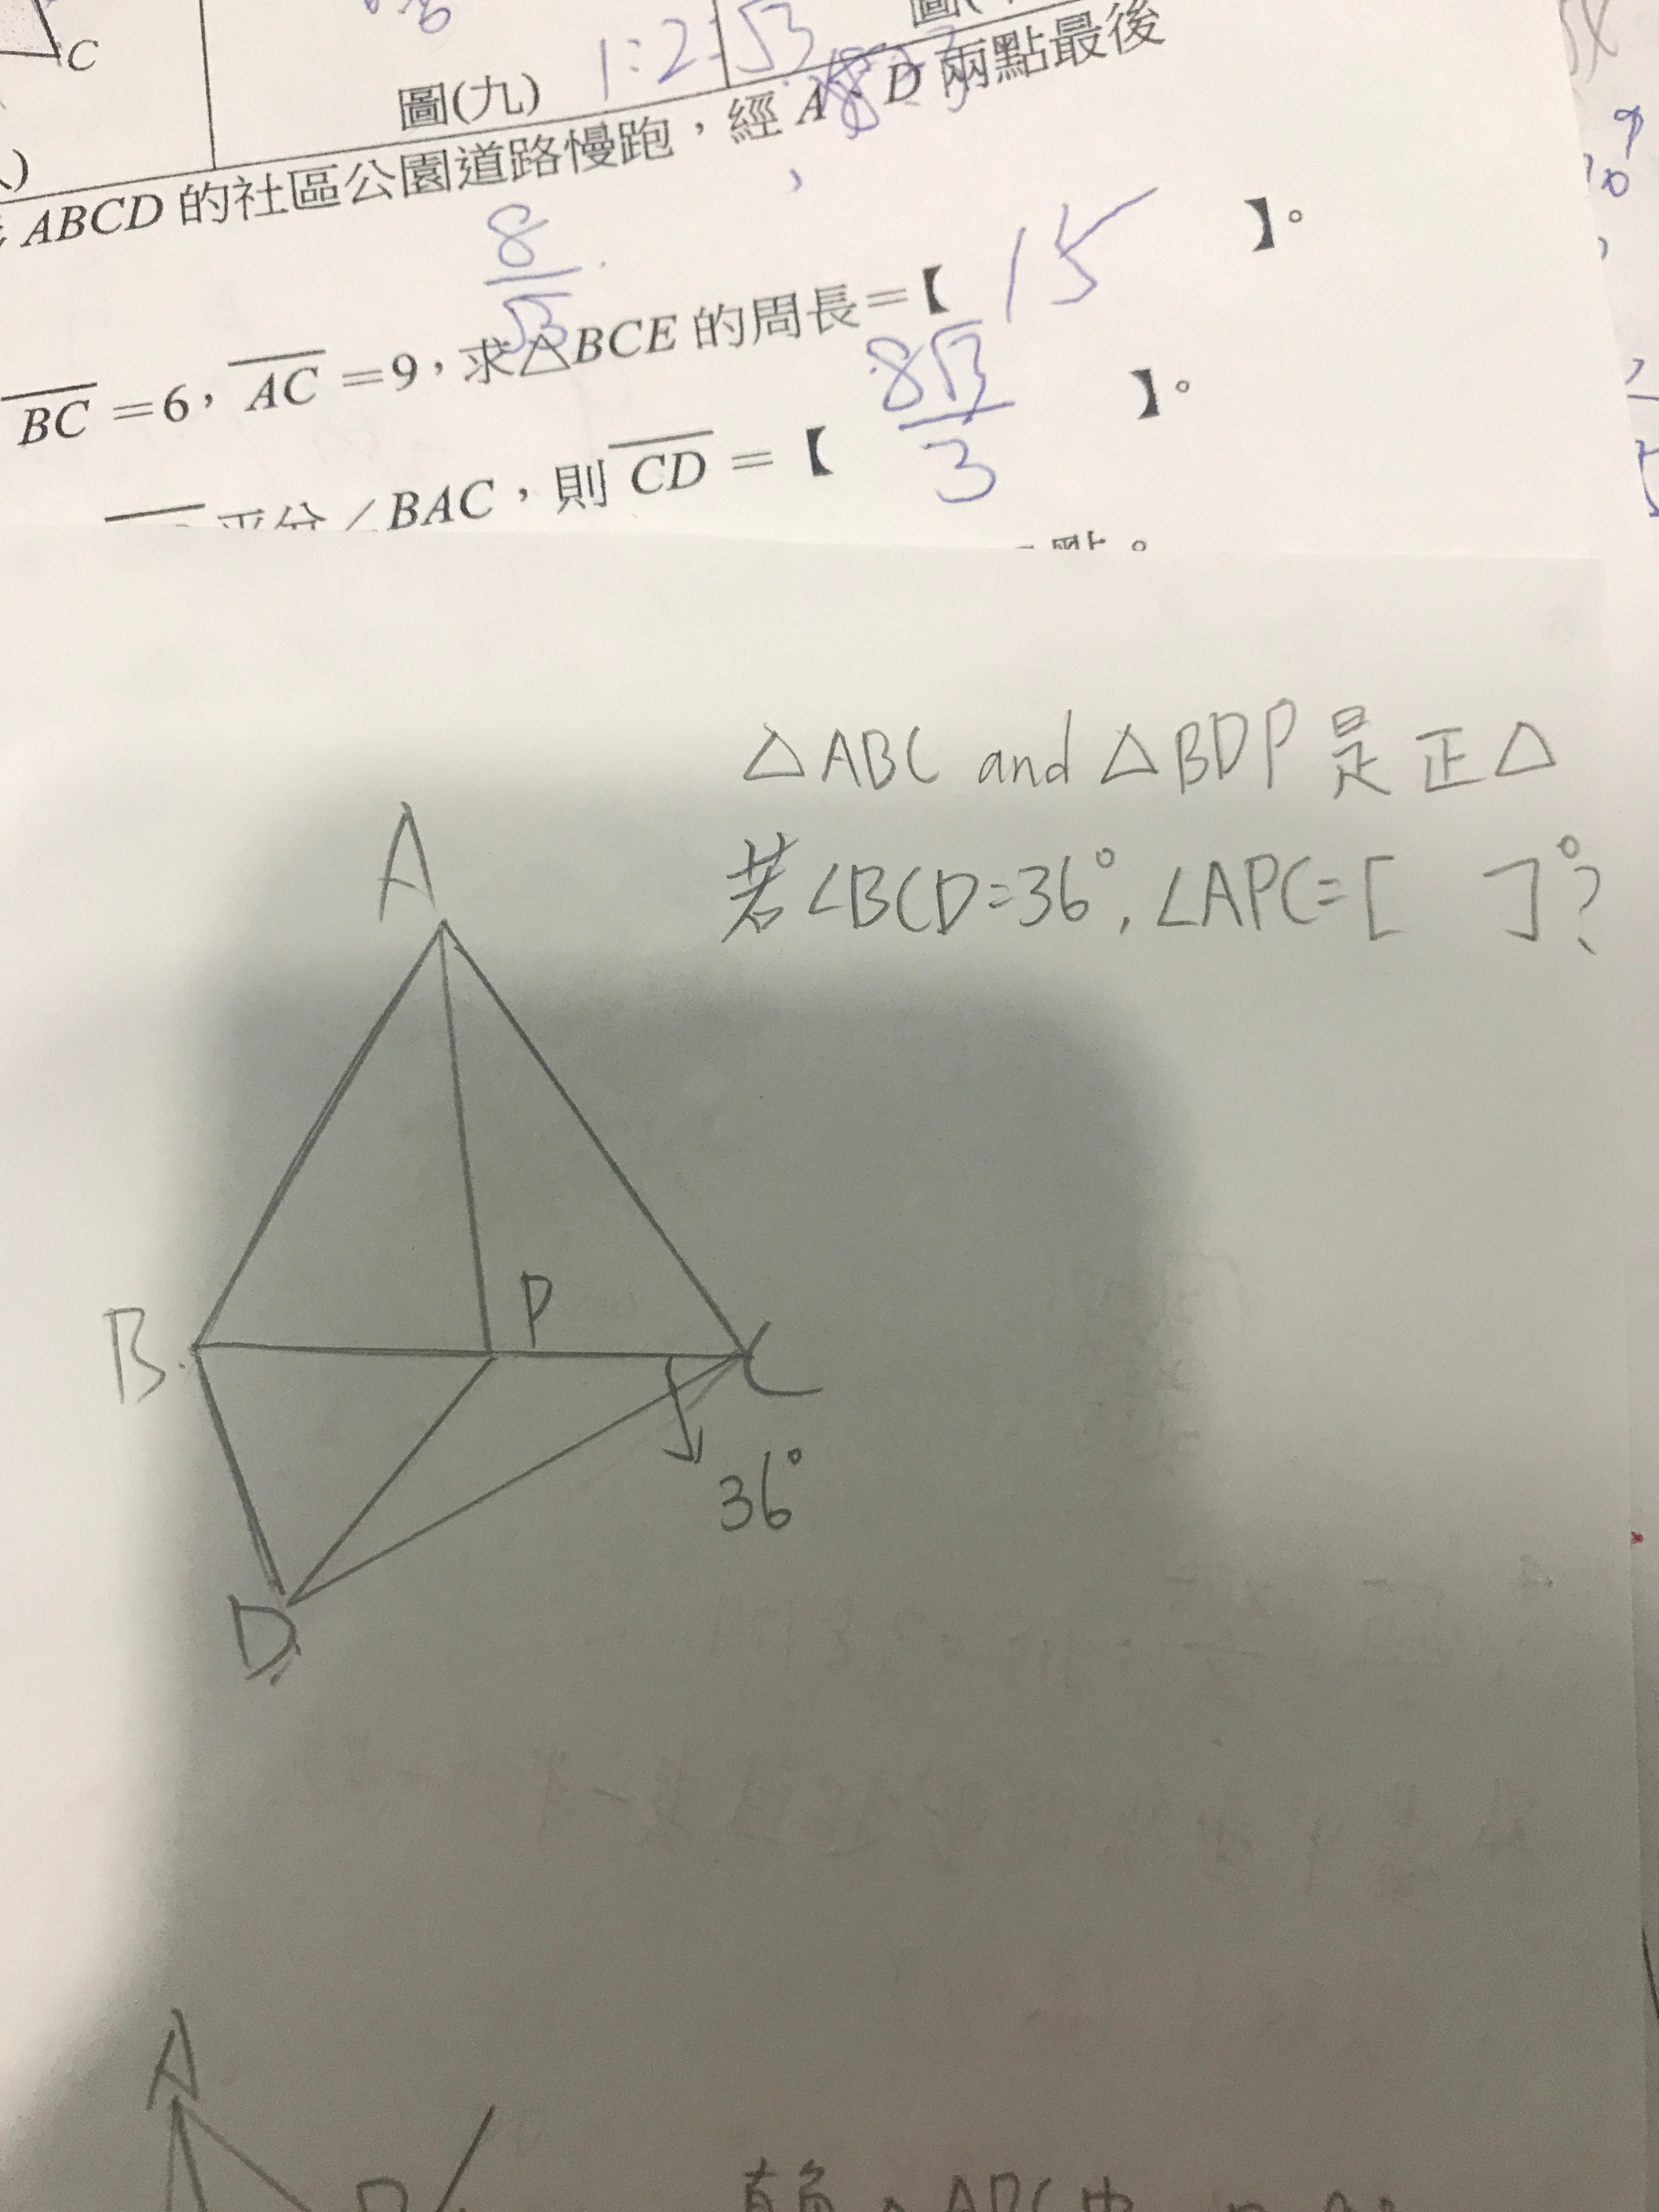 C
圖(九)
1:2:√3
ABCD 的社區公園道路慢跑，經 A、D 兩點最後
8/√3
BC=6，AC=9，求△BCE 的周長=【 15 】。
平分∠BAC，則 CD=【 8√3/3 】。
點。
△ABC and △BDP 是 正△
若∠BCD=36°, ∠APC=[ ]°?
A
P
B
C
36°
D
A